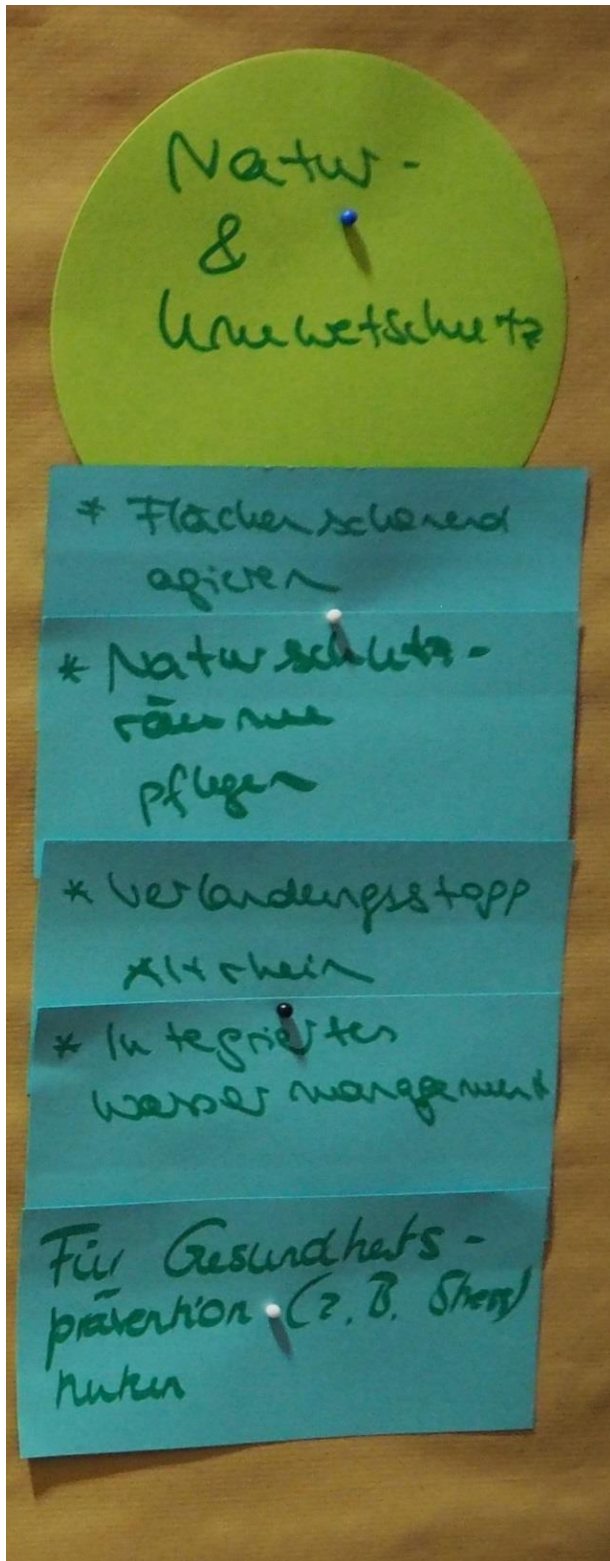 Natur-
&
Umwetschutz
* Flächenschonend
agieren
* Naturschutz-
räume
pflegen
* Verlandungsstopp
Altrhein
* Integriertes
Wassermanagement
Für Gesundheits-
prävention (z. B.
nutzen